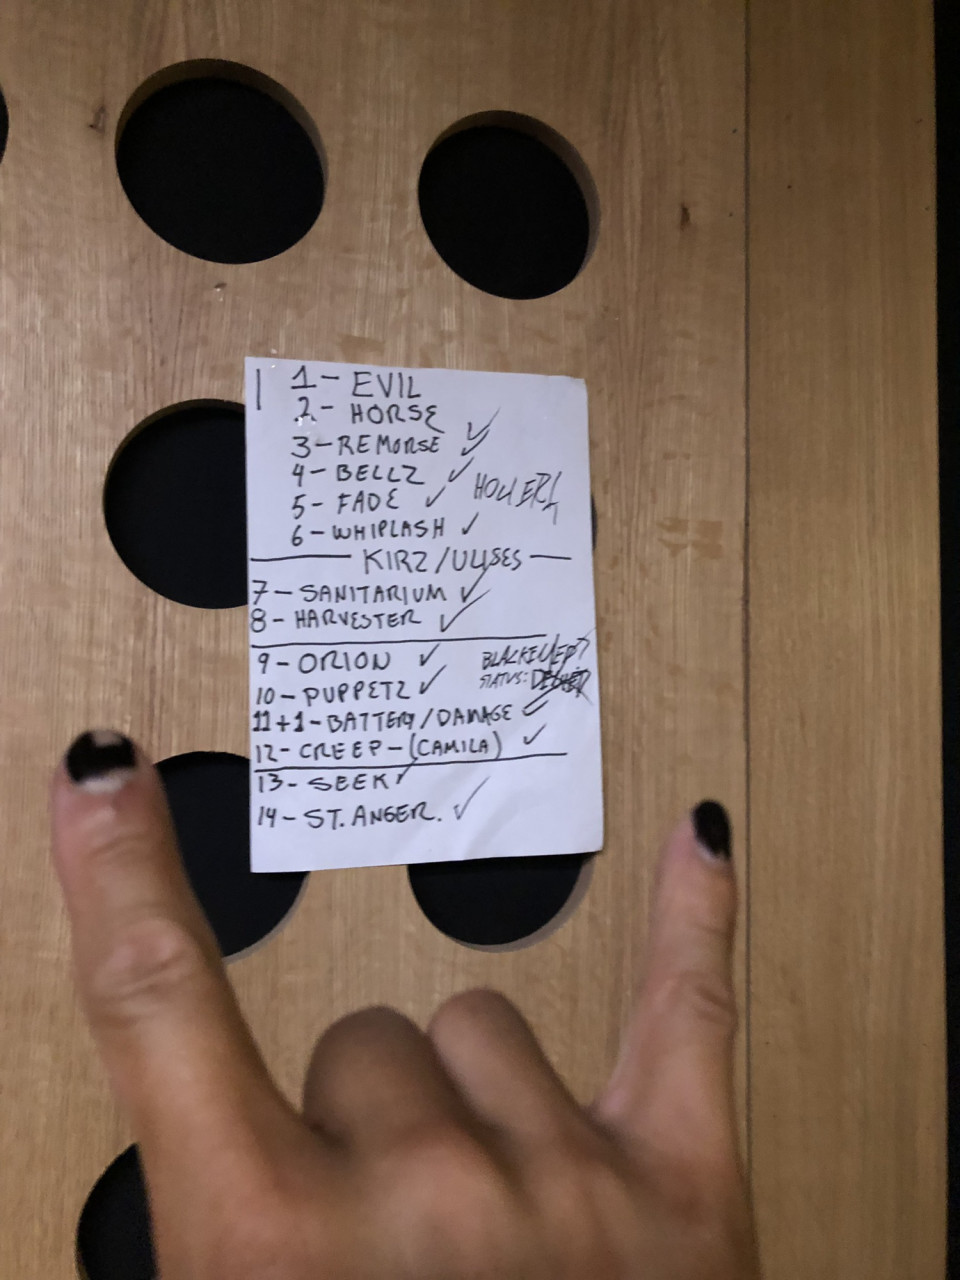 1- EVIL
2- HORSE
3-REMORSE ✓
4-BELLZ ✓
5- FADE ✓
6-WHIPLASH ✓
KIRZ/ULISES
7-SANITARIUM ✓
8- HARVESTER ✓
9-ORION ✓
10-PUPPETZ ✓
BLACKENED?
STATUS:
11+1-BATTERY/DAMAGE ✓
12- CREEP-(CAMILA) ✓
13- SEEK ✓
14-ST. ANGER. ✓